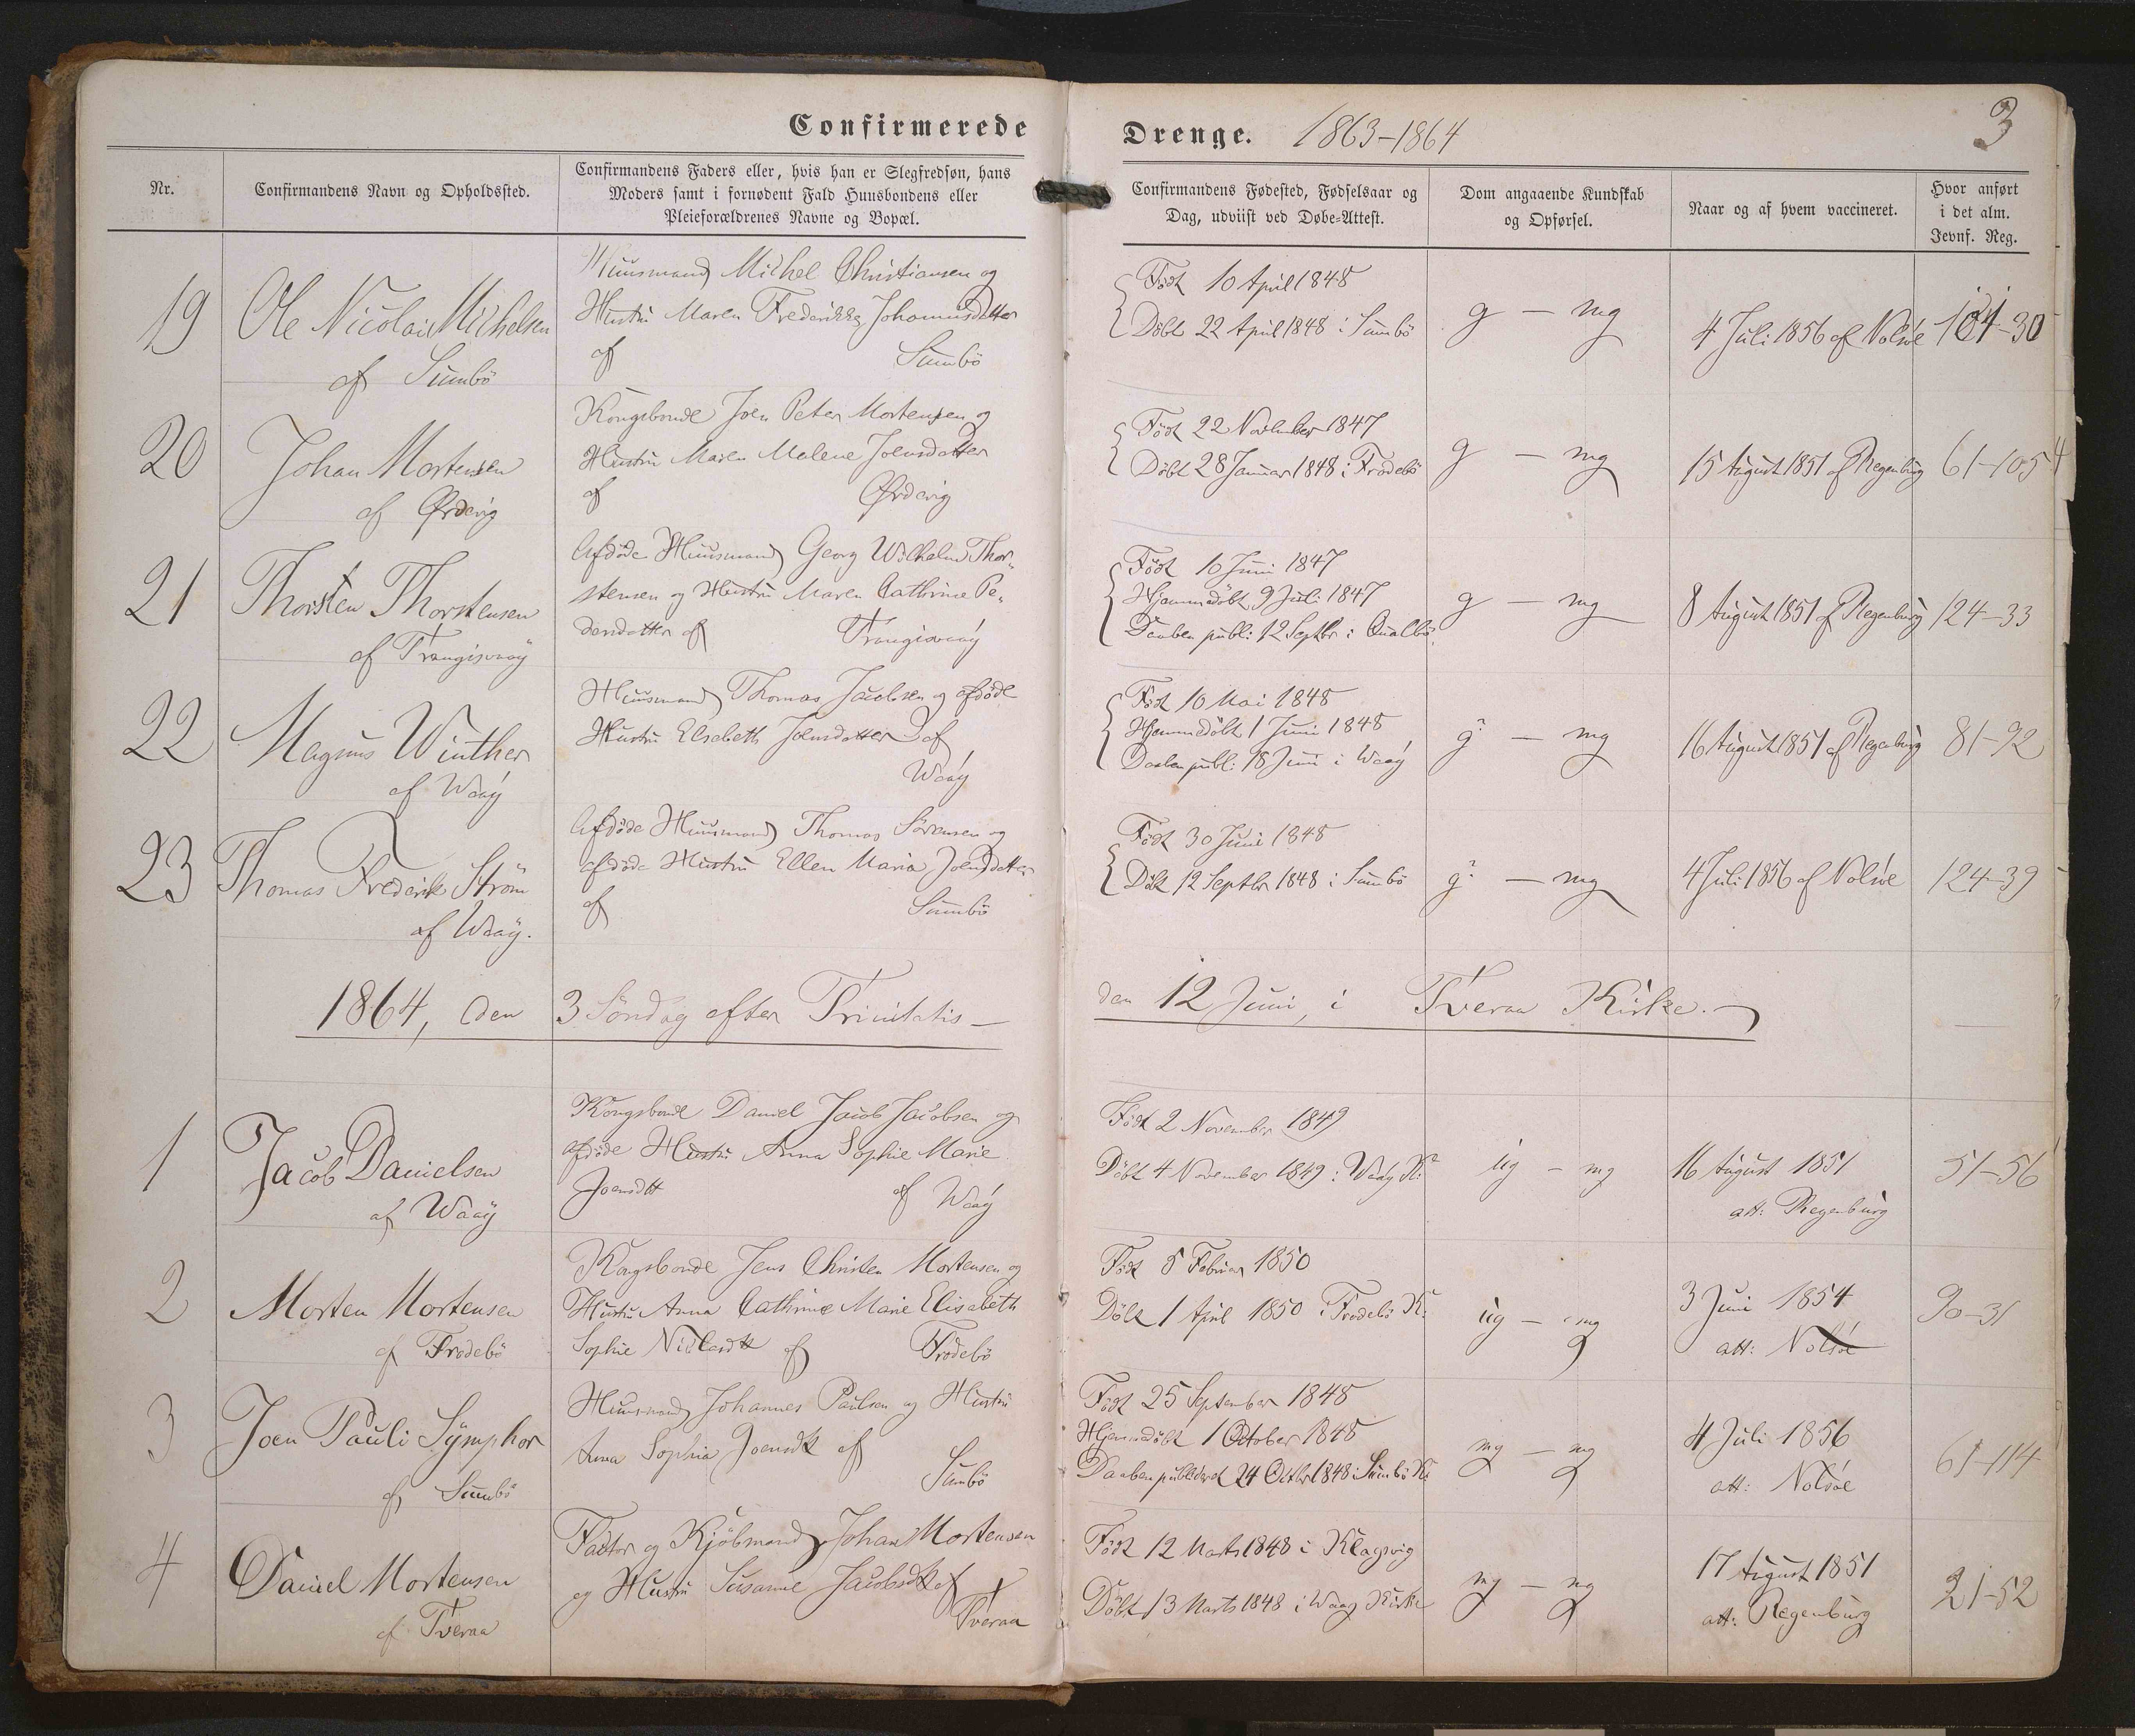 Confirmerede Drenge. 1863-1864
3
Nr.
Confirmandens Navn og Opholdssted.
Confirmandens Faders eller, hvis han er Slegfredsøn, hans
Moders samt i fornødent Fald Huusbondens eller
Pleieforældrenes Navne og Bopæl.
Confirmandens Fødested, Fødselsaar og
Dag, udviist ved Døbe-Attest.
Dom angaaende Kundskab
og Opførsel.
Naar og af hvem vaccineret.
Hvor anført
i det alm.
Jevnf. Reg.
19
Ole Nicolai Michelsen
af Sumbö
Huusmand Michel Christiansen og
Hustru Maren Frederikke Johannesdatter
af Sumbö
Födt 10 April 1848
Döbt 22 April 1848 i Sumbö
g - mg
4 Juli 1856 af Nolsöe
101-30
20
Johan Mortensen
af Ørdevig
Kongsbonde Joen Peter Mortensen og
Hustru Maren Malene Joensdatter
af Ørdevig
Födt 22 November 1847
Döbt 28 Januar 1848 i Frodebö
g - mg
15 August 1851 af Regenburg
61-105
21
Thorsten Thorstensen
af Trangisvaaÿ
Afdöde Huusmand Georg Wilhelm Thor-
stensen og Hustru Maren Cathrine Pe-
dersdatter af Trangisvaaÿ
Födt 10 Juni 1847
Hjemmedöbt 9 Juli 1847
Daaben publ: 12 Septbr i Qualbö
g - mg
8 August 1851 af Regenburg
124-33
22
Magnus Winther
af Waaÿ
Huusmand Thomas Jacobsen og afdöde
Hustru Elsebeth Joensdatter af
Waaÿ
Födt 10 Mai 1848
Hjemmedöbt 1 Juni 1848
Daaben publ: 18 Juni i Waaÿ
g? - mg
16 August 1851 af Regenburg
81-92
23
Thomas Frederik Ström
af Waaÿ.
Afdöde Huusmand Thomas Sörensen og
afdöde Hustru Ellen Maria Joensdatter
af Sumbö
Födt 30 Juni 1848
Döbt 12 Septbr 1848 i Sumbö
g? - mg
4 Juli 1856 af Nolsöe
124-39
1864, den 3 Söndag efter Trinitatis - den 12 Juni, i Tveraa Kirke.
1
Jacob Danielsen
af Waaÿ
Kongsbonde Daniel Jacob Jacobsen og
afdöde Hustru Anna Sophie Marie
Joensdtt af Waaÿ
Födt 2 November 1849
Döbt 4 November 1849 i Waaÿ K:
ug - mg
16 August 1851
att: Regenburg
51-56
2
Morten Mortensen
af Frodebö
Kongsbonde Jens Christen Mortensen og
Hustru Anna Cathrine Marie Elisabeth
Sophie af Frodebö
Födt 5 Februar 1850
Döbt 1 April 1850 i Frodebö K:
ug - mg
3 Juni 1854
att: Nolsöe
90-31
3
Joen Pauli Sÿmphor
af Sumbö
Huusmand Johannes Paulsen og Hustru
Anna Sophia Joensdtt af
Sumbö
Födt 25 September 1848
Hjemmedöbt 1 October 1848
Daaben publiceret 24 Octbr 1848 i Sumbö K:
mg - mg
4 Juli 1856
att: Nolsöe
61-114
4
Daniel Mortensen
af Tveraa
Factor og Kjöbmand Johan Mortensen
og Hustru Susanne Jacobsdtt af
Tveraa
Födt 12 Marts 1848 i Klagsvig
Döbt 13 Marts 1848 i Waag Kirke
mg - mg
17 August 1851
att: Regenburg
21-52